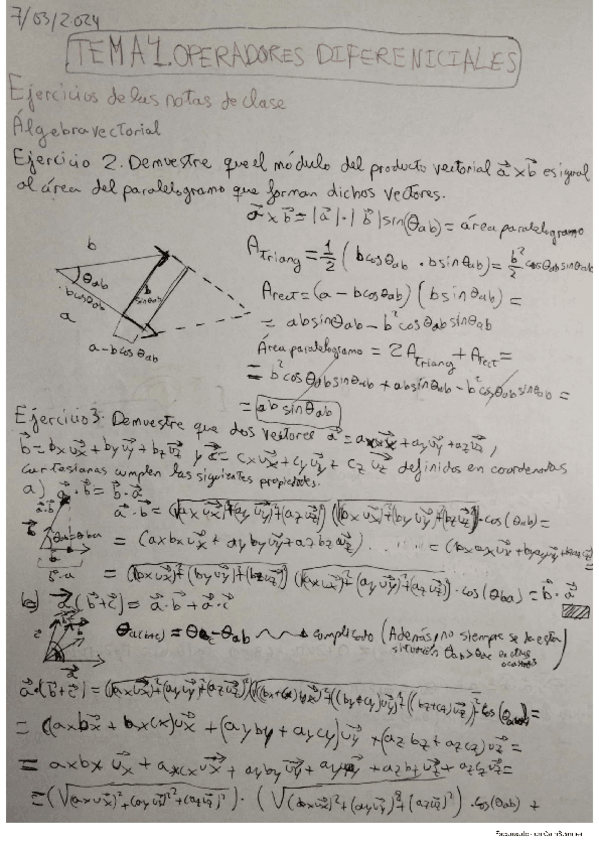 7/03/2024
TEMA 1. OPERADORES DIFERENICIALES
Ejercicios de las notas de clase
Álgebra vectorial
Ejercicio 2. Demuestre que el módulo del producto vectorial a⃗ x b⃗ es igual
al área del paralelogramo que forman dichos vectores.
a⃗ x b⃗ = |a⃗|·|b⃗| sin(θab) = área paralelogramo
A Triang = 1/2 (b cosθab · b sinθab) = b²/2 cosθab sinθab
b
θab
b cosθab
b sinθab
a
a - b cosθab
Arect = (a - b cosθab) (b sinθab) =
= ab sinθab - b² cosθab sinθab
Área paralelogramo = 2A Triang + Arect =
= b² cosθab sinθab + ab sinθab - b² cosθab sinθab =
= ab sinθab
Ejercicio 3. Demuestre que dos vectores a⃗ = ax ux⃗ + ay uy⃗ + az uz⃗,
b⃗ = bx ux⃗ + by uy⃗ + bz uz⃗ y c⃗ = cx ux⃗ + cy uy⃗ + cz uz⃗ definidos en coordenadas
cartesianas cumplen las siguientes propiedades.
a) a⃗ · b⃗ = b⃗ · a⃗
a⃗ · b⃗ = (√(ax ux⃗)² + (ay uy⃗)² + (az uz⃗)²) (√(bx ux⃗)² + (by uy⃗)² + (bz uz⃗)²) · cos(θab) =
θab = θba
= (ax bx ux⃗ + ay by uy⃗ + az bz uz⃗) ...... = (bx ax ux⃗ + by ay uy⃗ + bz az uz⃗) =
b⃗ · a⃗
= (√(bx ux⃗)² + (by uy⃗)² + (bz uz⃗)²) (√(ax ux⃗)² + (ay uy⃗)² + (az uz⃗)²) · cos(θba) = b⃗ · a⃗
b) a⃗(b⃗ + c⃗) = a⃗ · b⃗ + a⃗ · c⃗
complicado (Además, no siempre se da esta
situación
a⃗·(b⃗ + c⃗) =
= (ax bx + ax cx) ux⃗ + (ay by + ay cy) uy⃗ + (az bz + az cz) uz⃗ =
= ax bx ux⃗ + ax cx ux⃗ + ay by uy⃗ + ay cy uy⃗ + az bz uz⃗ + az cz uz⃗ =
= (√(ax ux⃗)² + (ay uy⃗)² + (az uz⃗)²) · · cos(θab) +